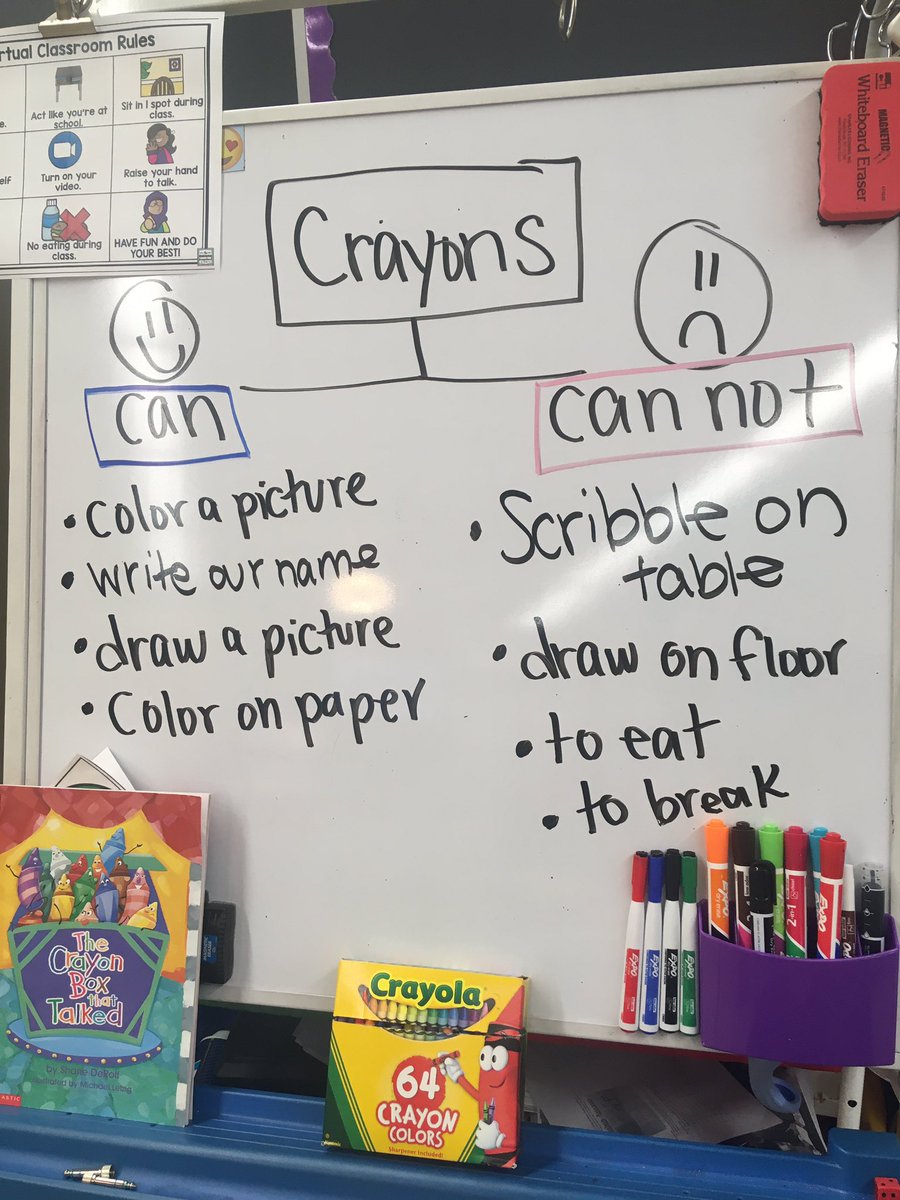 rtual Classroom Rules
Act like you're at
school.
Sit in I spot during
class.
Turn on your
video.
Raise your hand
to talk.
No eating during
class.
HAVE FUN AND DO
YOUR BEST!
MAGNETIC
Whiteboard Eraser
Crayons
can
can not
• color a picture
• write our name
• draw a picture
• Color on paper
• Scribble on
table
• draw on floor
• to eat
• to break
The
Crayon
Box
that
Talked
by Shane DeRolf
Illustrated by Michael Letzig
Crayola
64
CRAYON
COLORS
Sharpener Included!
EXPO
EXPO
EXPO
EXPO
EXPO
2-in-1
EXPO